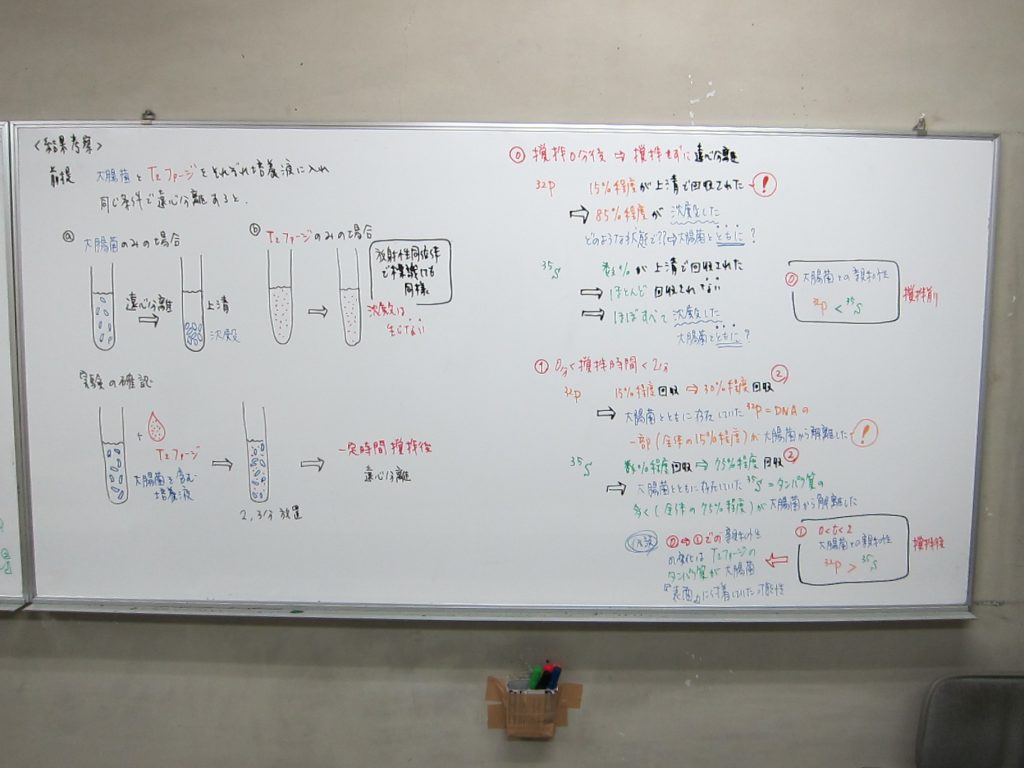 <結果考察>
前提 大腸菌とT2ファージをそれぞれ培養液に入れ
同じ条件で遠心分離あると、
ⓐ 大腸菌のみの場合
遠心分離
上清
沈殿
ⓑ T2ファージのみの場合
放射性同位体
で標識ても
同様
沈殿は
生じない
実験の確認
+
T2ファージ
大腸菌を含む
培養液
2,3分放置
一定時間攪拌後
遠心分離
⓪ 攪拌0分後 ⇒ 攪拌せずに遠心分離
32P 15%程度が上清で回収された !
⇒ 85%程度が沈殿した
どのような状態で?⇒大腸菌とともに?
35S 数%が上清で回収された
⇒ ほとんど回収されない
⇒ ほぼすべて沈殿した
大腸菌とともに?
⓪ 大腸菌との親和性
32P < 35S
攪拌前
① 0分<攪拌時間<2分
32P 15%程度回収 ⇒ 30%程度回収 ②
⇒ 大腸菌とともに存在していた32P=DNAの
一部(全体の15%程度)が大腸菌から解離した !
35S 数%程度回収 ⇒ 75%程度回収 ②
⇒ 大腸菌とともに存在していた35S=タンパク質の
多く(全体の75%程度)が大腸菌から解離した
① 0<t<2
大腸菌との親和性
32P > 35S
攪拌後
仮説 ⓪⇒①での親和性
の変化はT2ファージの
タンパク質が大腸菌
『表面』に付着していた可能性